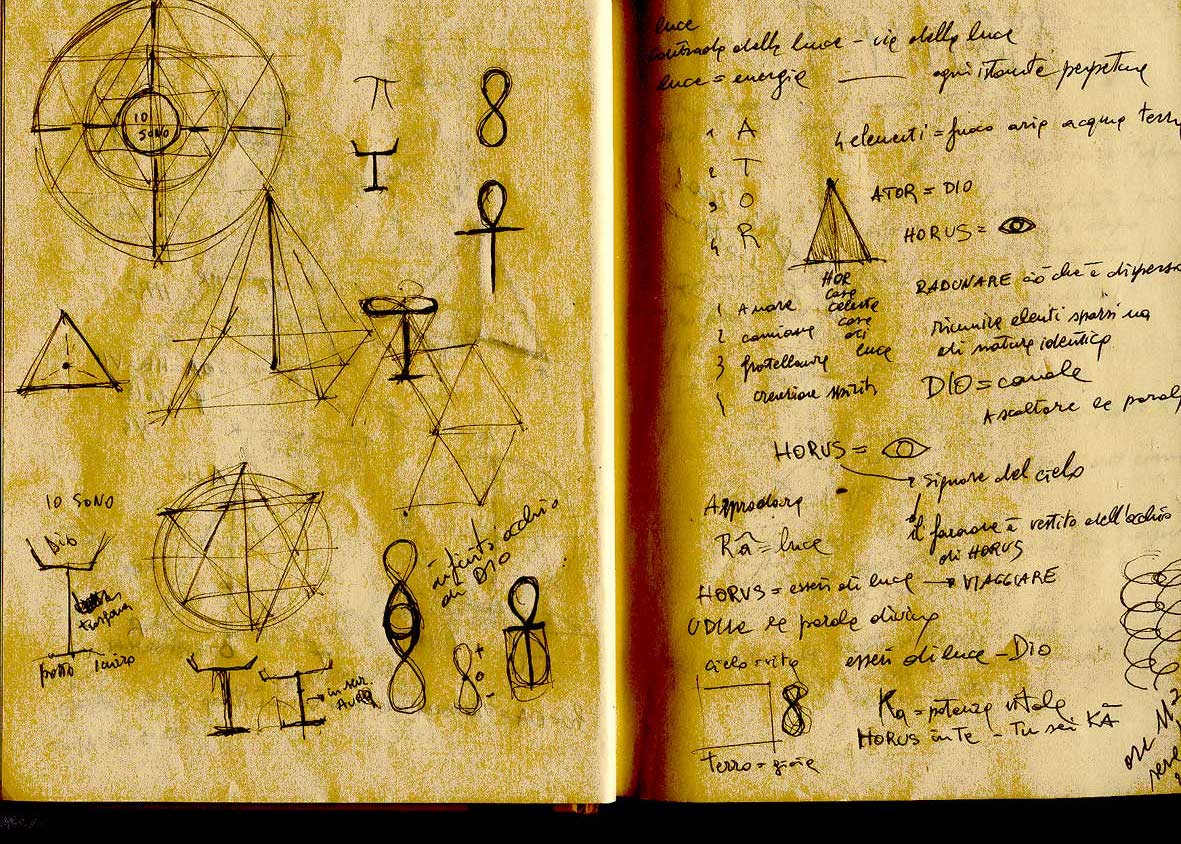 IO
SONO
π
IO SONO
DIO
infinito occhio
di DIO
+
o
-
in sen.
luce
della luce - vie della luce
luce = energia ogni istante perpetua
1 A
2 T
3 O
4 R
4 elementi = fuoco aria acqua terra
ATOR = DIO
HORUS =
HOR
casa
celeste
casa
di
luce
1 Amore
2
3 fratellanza
4 creazione
RADUNARE ciò che è disperso
riunire sparsi
di natura identica
DIO = canale
Ascoltare le parole
HORUS =
signore del cielo
il faraone è vestito dell'occhio
di HORUS
Approdare
Râ = luce
HORUS = esseri di luce → VIAGGIARE
UDIRE le parole divine
cielo = vita esseri di luce - DIO
Ka = potenza vitale
HORUS in te - Tu sei KA
terra = gioia